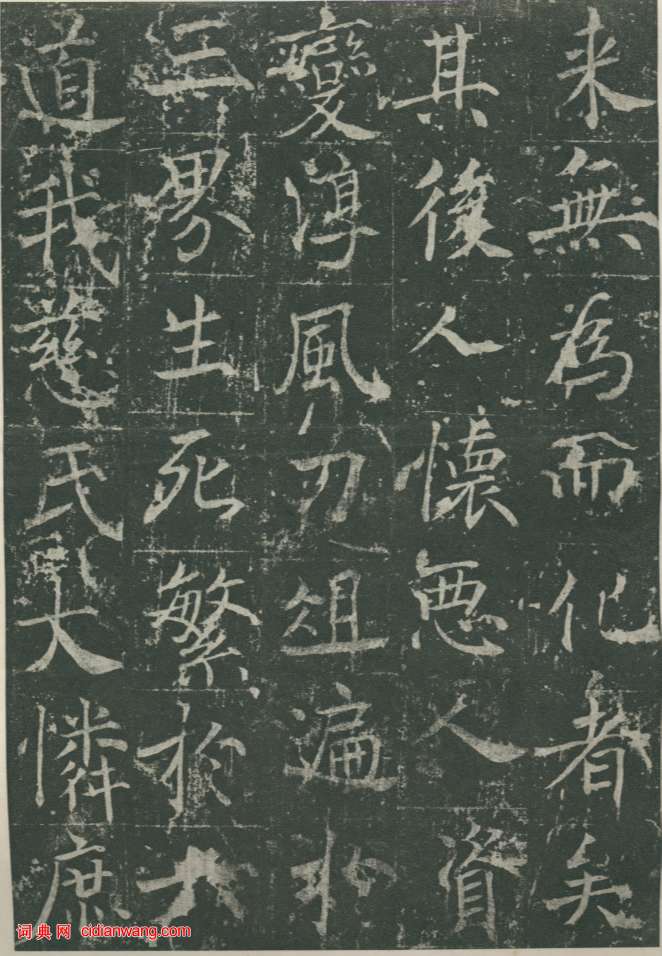 来無為而化者矣
其後人懷惡人資
變淳風刃俎遍於
三界生死繁於六
道我慈氏大憐庶
词典网 cidianwang.com